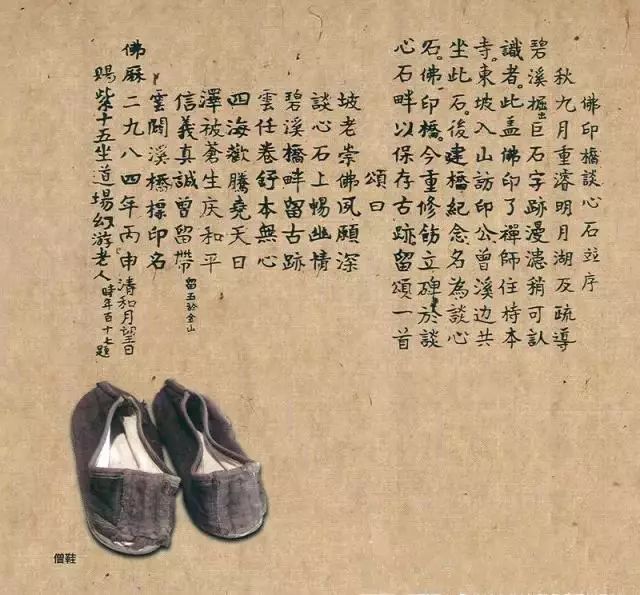 佛印橋談心石並序
秋九月重濬明月湖及疏導
碧溪掘出巨石字跡漫漶稍可認
識者。此盖佛印了禪師住持本
寺。東坡入山訪印公曾溪边共
坐此石。後建橋紀念名為談心
石。佛印橋。今重修飭立碑於談
心石畔以保存古跡。留頌一首
頌曰
坡老崇佛夙願深
談心石上暢幽情
碧溪橋畔留古跡
雲任卷舒本無心
四海歡騰堯天日
澤被蒼生庆和平
信義真誠曾留帶 留玉於金山
雲關溪橋標印名
佛厤二九八四年丙申清和月望日
賜紫十五坐道場幻游老人 時年百十七題
僧鞋